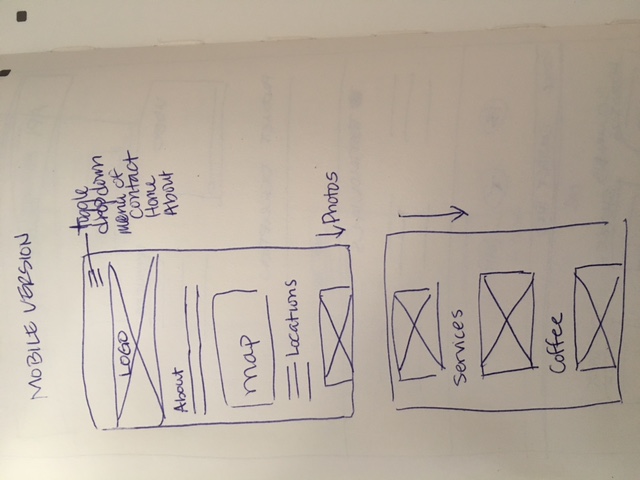 MOBILE VERSION
toggle
dropdown
menu of
Contact
Home
About
LOGO
About
map
Locations
Photos
Services
Coffee